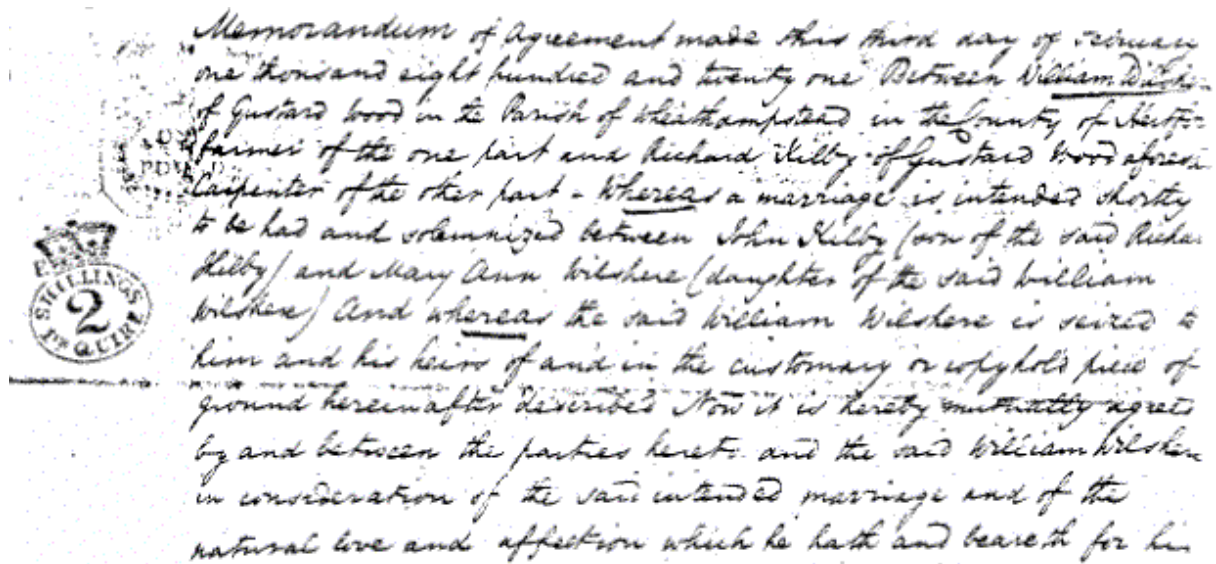 Memorandum of Agreement made this third day of
one thousand eight hundred and twenty one Between William
of Gustard Wood in the Parish of Wheathampstead in the County of
farmer of the one part and Richard Kilby of Gustard Wood
Carpenter of the other part - Whereas a marriage is intended shortly
to be had and solemnized between John Kilby (son of the said
Kilby) and Mary Ann Wilshere (daughter of the said William
Wilshere) And whereas the said William Wilshere is seized to
him and his heirs of and in the customary or copyhold piece of
ground hereinafter described Now it is hereby mutually agreed
by and between the parties hereto and the said William Wilshere
in consideration of the said intended marriage and of the
natural love and affection which he hath and beareth for his
SHILLINGS
2
PR QUIRE